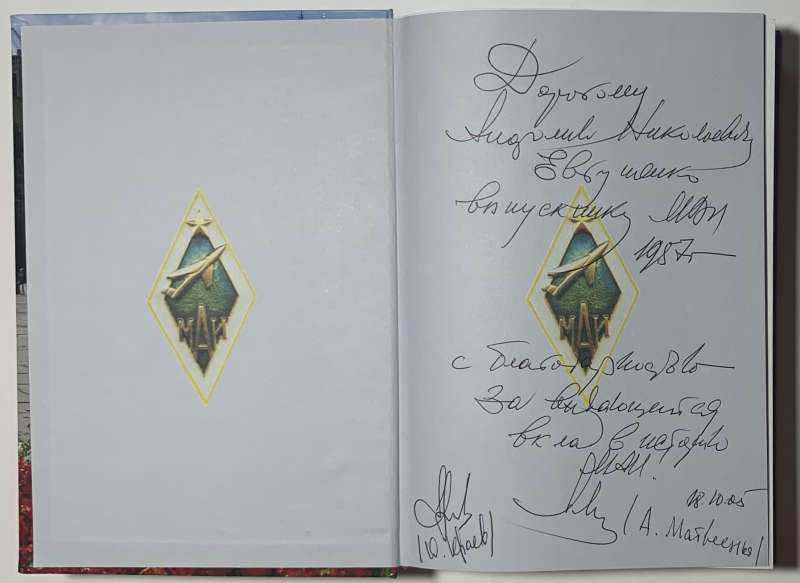 МАИ
Дорогому
Андрею Николаевичу
Евтушенко
выпускнику МАИ
1987г
МАИ
с благодарностью
За выдающейся
вклад в историю
МАИ!
18.10.05
(А. Матвеенко)